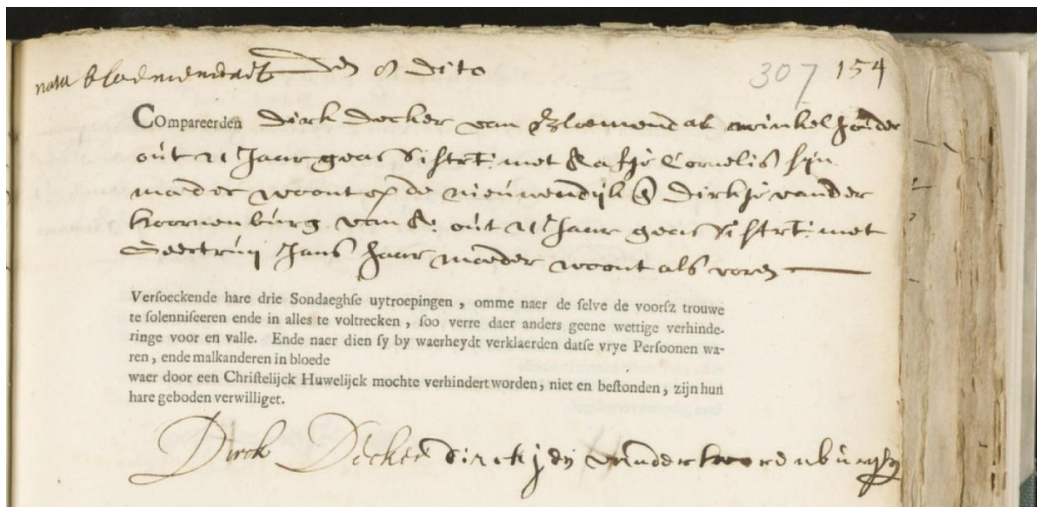 naer bloemendael den 8 dito
307 154
Compareerden Dirk Decker van Bloemendal winkelhouder
oút 21 Jaer geassisteert met Aeftje Cornelis sijn
moeder woont op de nieúwendijk & Dirkje vander
koornenbúrg van A. oút 21 Jaer geassisteert met
Geertruij Jans haar moeder woont als voren
Versoeckende hare drie Sondaeghse uytroepingen, omme naer de selve de voorsz trouwe
te solenniseeren ende in alles te voltrecken, soo verre daer anders geene wettige verhinde-
ringe voor en valle. Ende naer dien sy by waerheydt verklaerden datse vrye Persoonen wa-
ren, ende malkanderen in bloede
waer door een Christelijck Huwelijck mochte verhindert worden, niet en bestonden, zijn hun
hare geboden verwilliget.
Dirck Decker dirckjen vander koorenbúrgh